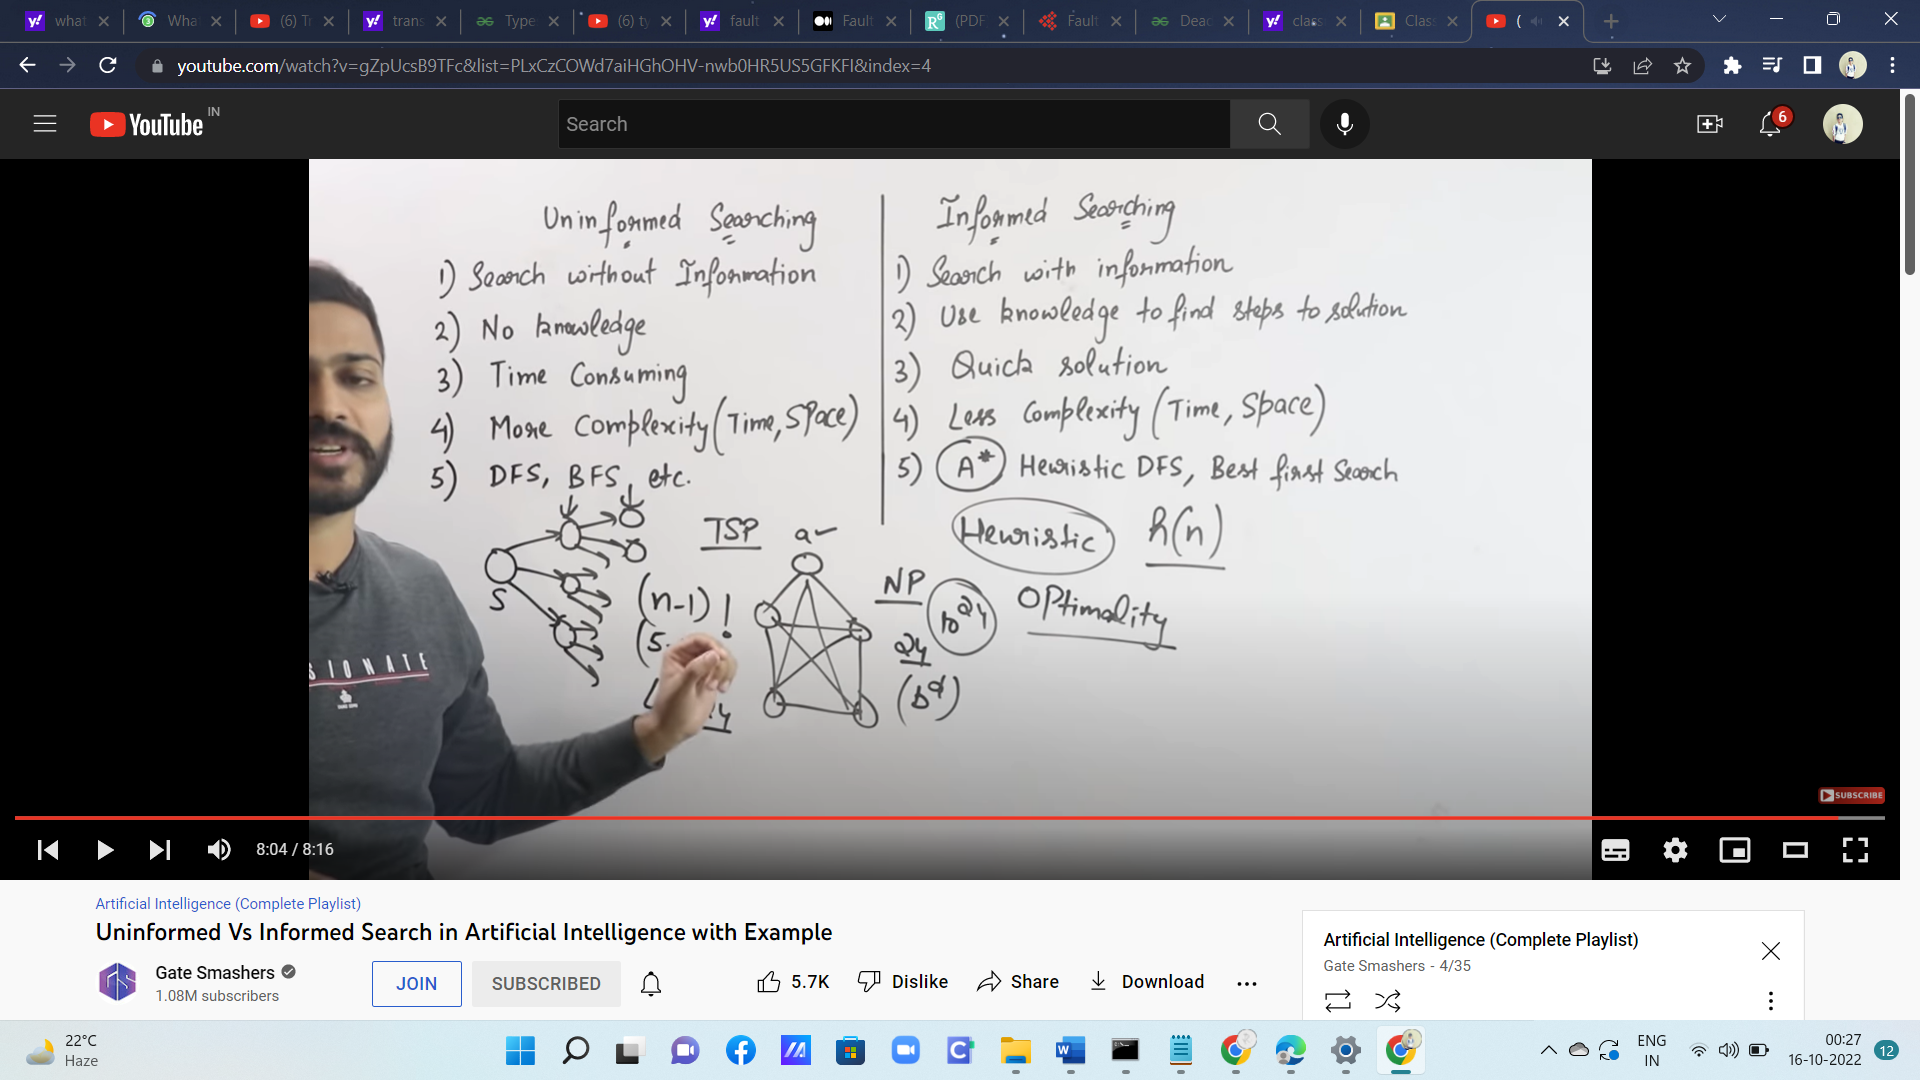 what
What
(6) Tr
trans
Type
(6) ty
fault
Fault
(PDF
Fault
Dead
class
Class
(
youtube.com/watch?v=gZpUcsB9TFc&list=PLxCzCOWd7aiHGhOHV-nwb0HR5US5GFKFI&index=4
YouTube IN
Search
6
Uninformed Searching
1) Search without Information
2) No knowledge
3) Time Consuming
4) More Complexity (Time, Space)
5) DFS, BFS, etc.
Informed Searching
1) Search with information
2) Use knowledge to find steps to solution
3) Quick solution
4) Less Complexity (Time, Space)
5) A* Heuristic DFS, Best first Search
Heuristic h(n)
Optimality
TSP a
S
(n-1)!
(5-
24
NP
10^24
24
(b^d)
SIONATE
SUBSCRIBE
8:04 / 8:16
Artificial Intelligence (Complete Playlist)
Uninformed Vs Informed Search in Artificial Intelligence with Example
Gate Smashers
1.08M subscribers
JOIN
SUBSCRIBED
5.7K
Dislike
Share
Download
Artificial Intelligence (Complete Playlist)
Gate Smashers - 4/35
22°C
Haze
ENG
IN
00:27
16-10-2022
12